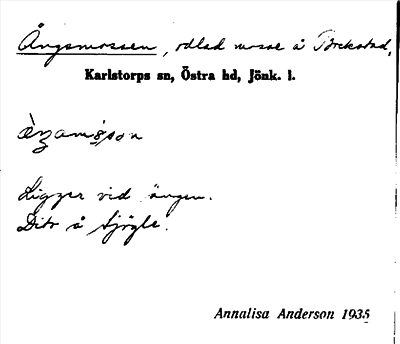 Ängsmossen, odlad mosse å Torkstad,
Karlstorps sn, Östra hd, Jönk. l.
Ligger vid ängen.
Dito å Sjögle.
Annalisa Anderson 1935